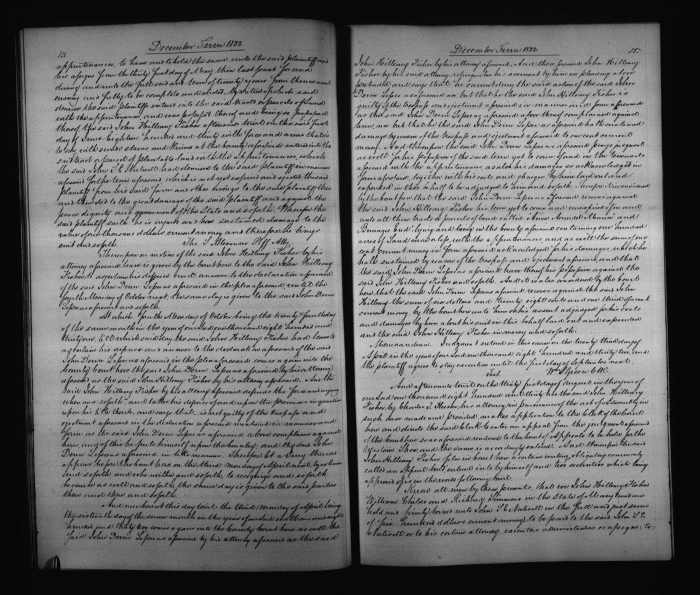 14
December Term 1832
appurtenances, to have and to hold the same unto the said plaintiff and
his assigns from the thirty first day of May then last past for and
during and unto the full end and term of twenty years from thence next
ensuing and fully to be complete and ended. By virtue of which said
demise the said plaintiff entered into the said tract or parcels of land
with the appurtenances, and was possessed thereof and being so possessed
thereof the said John Hillary Fisher afterwards to wit on the said first
day of June Eighteen hundred and thirty with force and arms that is
to say with swords staves and knives at the county aforesaid entered into the
said tract or parcel of plantable land with the appurtenances, which
the said John
aforesaid for the term aforesaid which is not yet expired and ejected the said
plaintiff from his said farm and other wrongs to the said plaintiff then
and there did to the great damage of the said plaintiff and against the
peace dignity and government of the State and so forth. Wherefore the
said plaintiff saith he is injured and hath sustained damage to the
value of one thousand dollars current money and therefore he brings
suit and so forth.
Alexander Plff Atty.
Thereupon on motion of the said John Hillary Fisher by his
attorney aforesaid leave is given by the court here to the said John Hillary
Fisher
of the said John Deen Lessee as aforesaid in the plea aforesaid, until the
fourth Monday of October next, the same day is given to the said John Deen
Lessee as aforesaid and so forth.
At which fourth Monday of October being the twenty fourth day
of the same month in the year of our Lord one thousand eight hundred and
thirty one, until which day the said John Hillary Fisher had leave
John Deen Lessee as aforesaid in the plea aforesaid comes again into the
county court here the said John Deen Lessee as aforesaid by his attorney
aforesaid as the said John Hillary Fisher by his attorney aforesaid. And the
said John Hillary Fisher by his attorney aforesaid defends the force and injury
when and so forth
upon his
ejectment aforesaid in the declaration aforesaid mentioned in manner and
form as the said John Deen Lessee as aforesaid above complains against
him, and of this he puts himself upon the country, and the said John
Deen Lessee as aforesaid in like manner. Therefore let a Jury thereon
appear before the court here on the third Monday of April next, by whom
and so forth and who neither and so forth, to recognize and so forth
because as well and so forth, the same day is given to the said parties
then and there and so forth.
And now here at this day to wit the third Monday of April being
the sixteenth day of the same month in the year of our Lord one thousand eight
hundred and thirty two comes again into the County Court here as well the
said John Deen Lessee as aforesaid by his attorney aforesaid as the said
December Term 1832
15
John Hillary Fisher by his attorney aforesaid. And the aforesaid John Hillary
Fisher by his said attorney relinquishes his averment by him in pleading above
pretended and says that he cannot deny the said action of the said John
Deen Lessee as aforesaid nor but that he the said John Hillary Fisher is
guilty of the trespass and ejectment aforesaid in manner and form aforesaid
as the said John Deen Lessee as aforesaid above thereof complains against
him, nor but that he the said John Deen Lessee as aforesaid hath sustained
damage by reason of the trespass and ejectment aforesaid to one cent current
money. And thereupon the said John Deen Lessee as aforesaid prays judgment
as well of his possession of the said term yet to come of and in the tenements
aforesaid with the appurtenances as of his damages so acknowledged in
form aforesaid, together with his costs and charges by him laid out and
expended in this behalf to be adjudged to him and so forth. Therefore it is considered
by the court here that the said John Deen Lessee as aforesaid recover against
the said John Hillary Fisher his term yet to come and unexpired of and
lying and being in the county aforesaid containing one hundred
acres of Land
cent current money in form aforesaid acknowledged for his damages which he
hath sustained by reason of the trespass and ejectment aforesaid, and that
the said John Deen Lessee as aforesaid have thereof his possession against the
said John Hillary Fisher and so forth. And it is also considered by the court
here that the said John Deen Lessee as aforesaid recover against the said John
Hillary the sum of six dollars and twenty eight cents and one third of a cent
current money by the court here unto him on his assent adjudged for his costs
and charges by him about his suit in this behalf laid out and expended
and the said John Hillary Fisher in mercy and so forth.
Memorandum. Judgment entered in this case on the twenty third day of
April in the year of our Lord one thousand eight hundred and thirty two, and
the plaintiff agrees to stay execution until the first day of September next.
Test
Wm S Green Clk
And afterwards to wit on the thirty first day of August in the year of
our Lord one thousand eight hundred and thirty two the said John Hillary
Fisher by
such case made and provided, makes application to the Clerk of the Court
here and directs the said Clerk to enter an appeal from the judgment aforesaid
of the court here so as aforesaid rendered to the Court of Appeals to be held for the
Western Shore and the same is accordingly entered. And at the same time the said
John Hillary Fisher files in court here a certain writing obligatory commonly
called an Appeal bond entered into by himself and two securities which bond
appears of record in the words following to wit.
Know all men by these presents, that we John Hillary Fisher
William
held and firmly bound unto John
of five hundred dollars current money, to be paid to the said John
or to his certain attorney, executors administrators or assigns: to